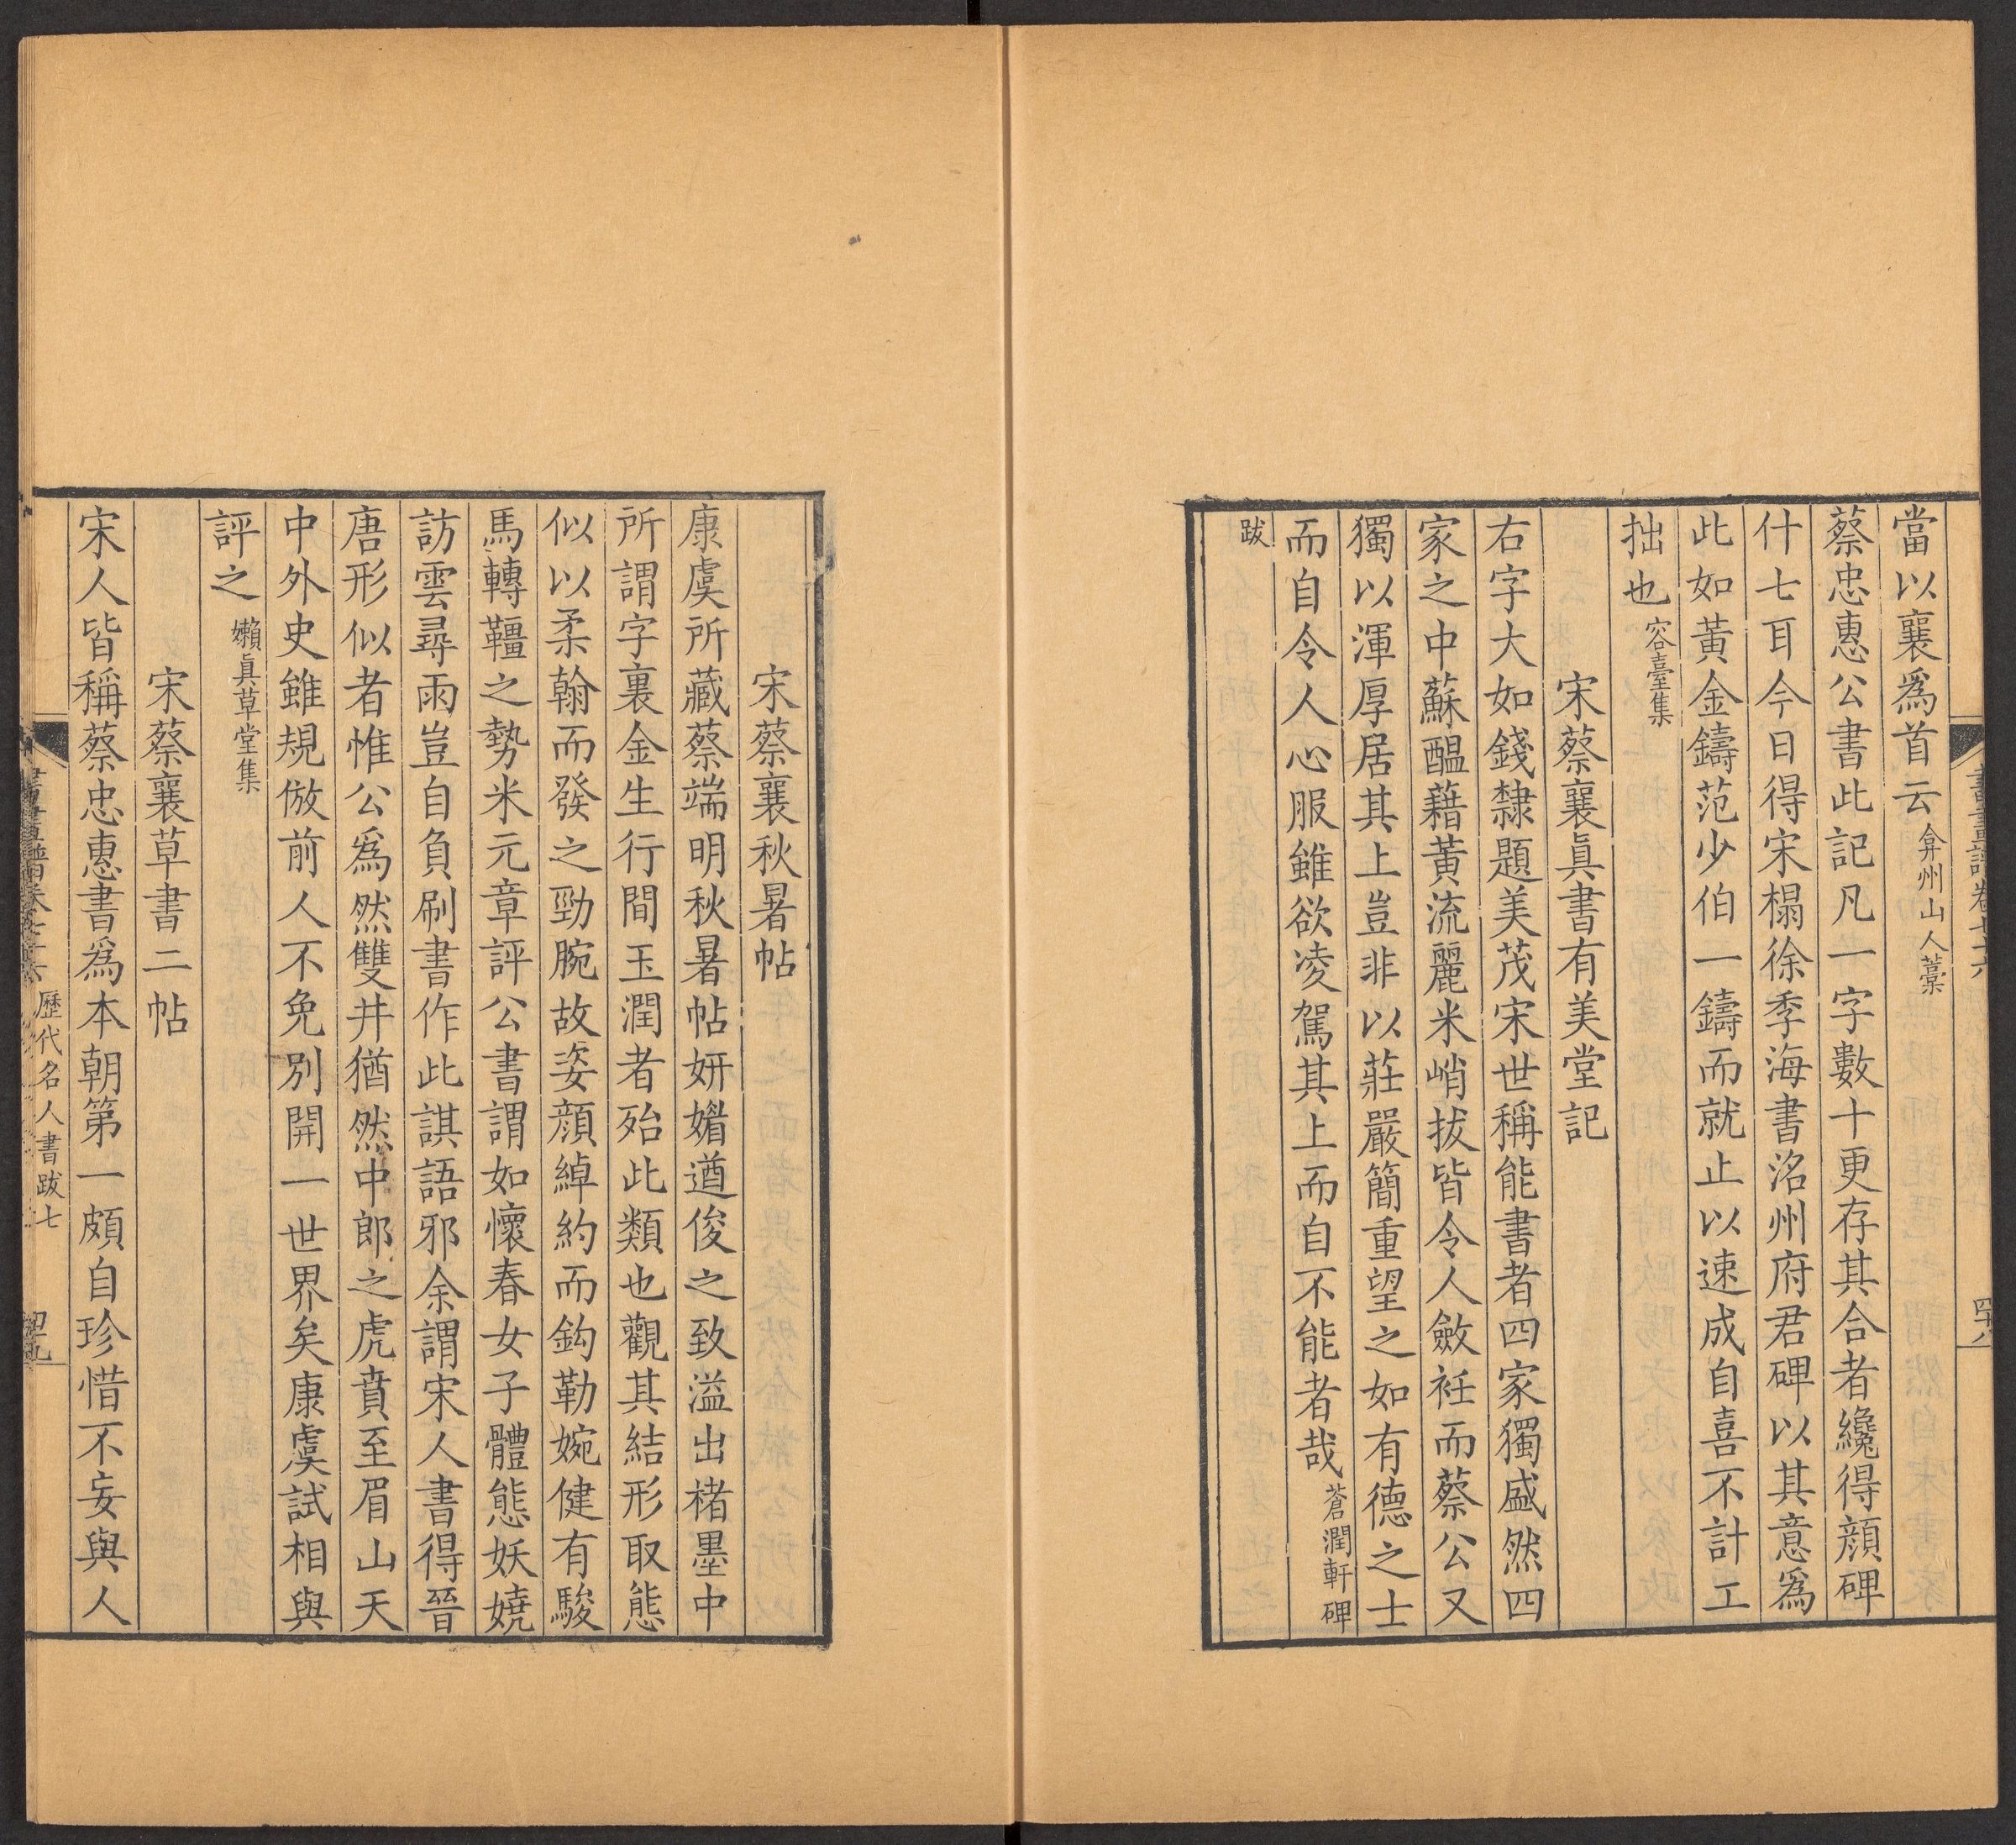 當以襄爲首云弇州山人藁
蔡忠惠公書此記凡一字數十更存其合者纔得顔碑
什七耳今日得宋榻徐季海書洺州府君碑以其意爲
此如黃金鑄范少伯一鑄而就止以速成自喜不計工
拙也容臺集
宋蔡襄眞書有美堂記
右字大如錢隸題美茂宋世稱能書者四家獨盛然四
家之中蘇醞藉黃流麗米峭拔皆令人斂衽而蔡公又
獨以渾厚居其上豈非以莊嚴簡重望之如有德之士
而自令人心服雖欲凌駕其上而自不能者哉蒼潤軒碑
跋
宋蔡襄秋暑帖
康虞所藏蔡端明秋暑帖妍媚遒俊之致溢出楮墨中
所謂字裏金生行間玉潤者殆此類也觀其結形取態
似以柔翰而發之勁腕故姿顔綽約而鈎勒婉健有駿
馬轉韁之勢米元章評公書謂如懷春女子體態妖嬈
訪雲尋雨豈自負刷書作此諆語邪余謂宋人書得晉
唐形似者惟公爲然雙井猶然中郎之虎賁至眉山天
中外史雖規倣前人不免別開一世界矣康虞試相與
評之嬾眞草堂集
宋蔡襄草書二帖
宋人皆稱蔡忠惠書爲本朝第一頗自珍惜不妄與人
歷代名人書跋七